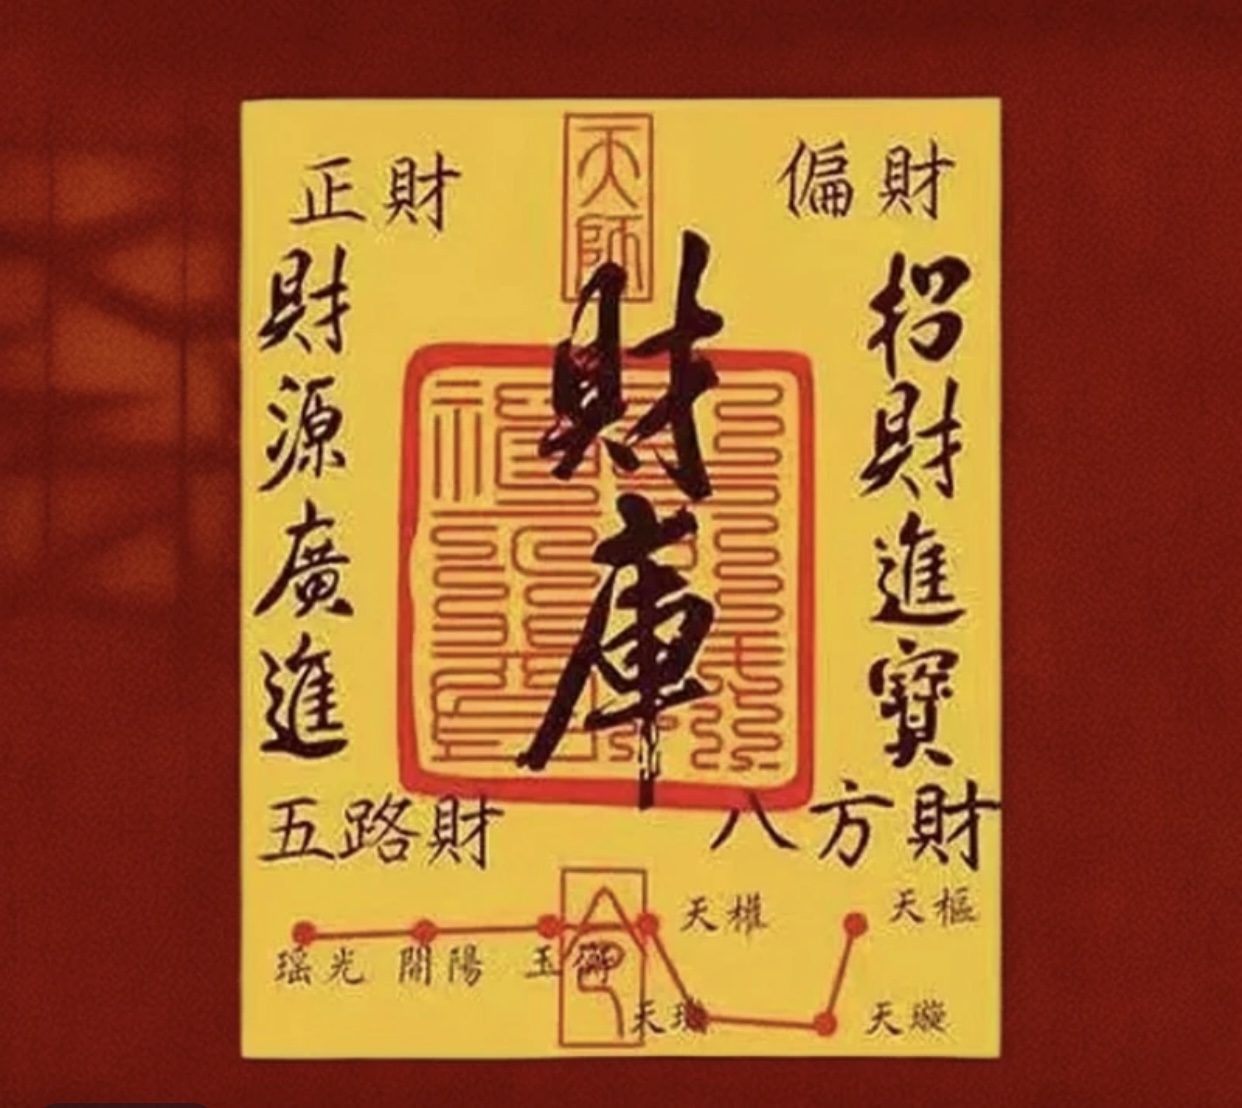 天師
正財
偏財
招財進寶
財庫
財源廣進
五路財
八方財
天權
天樞
瑤光
開陽
玉衡
天璣
天璇
令